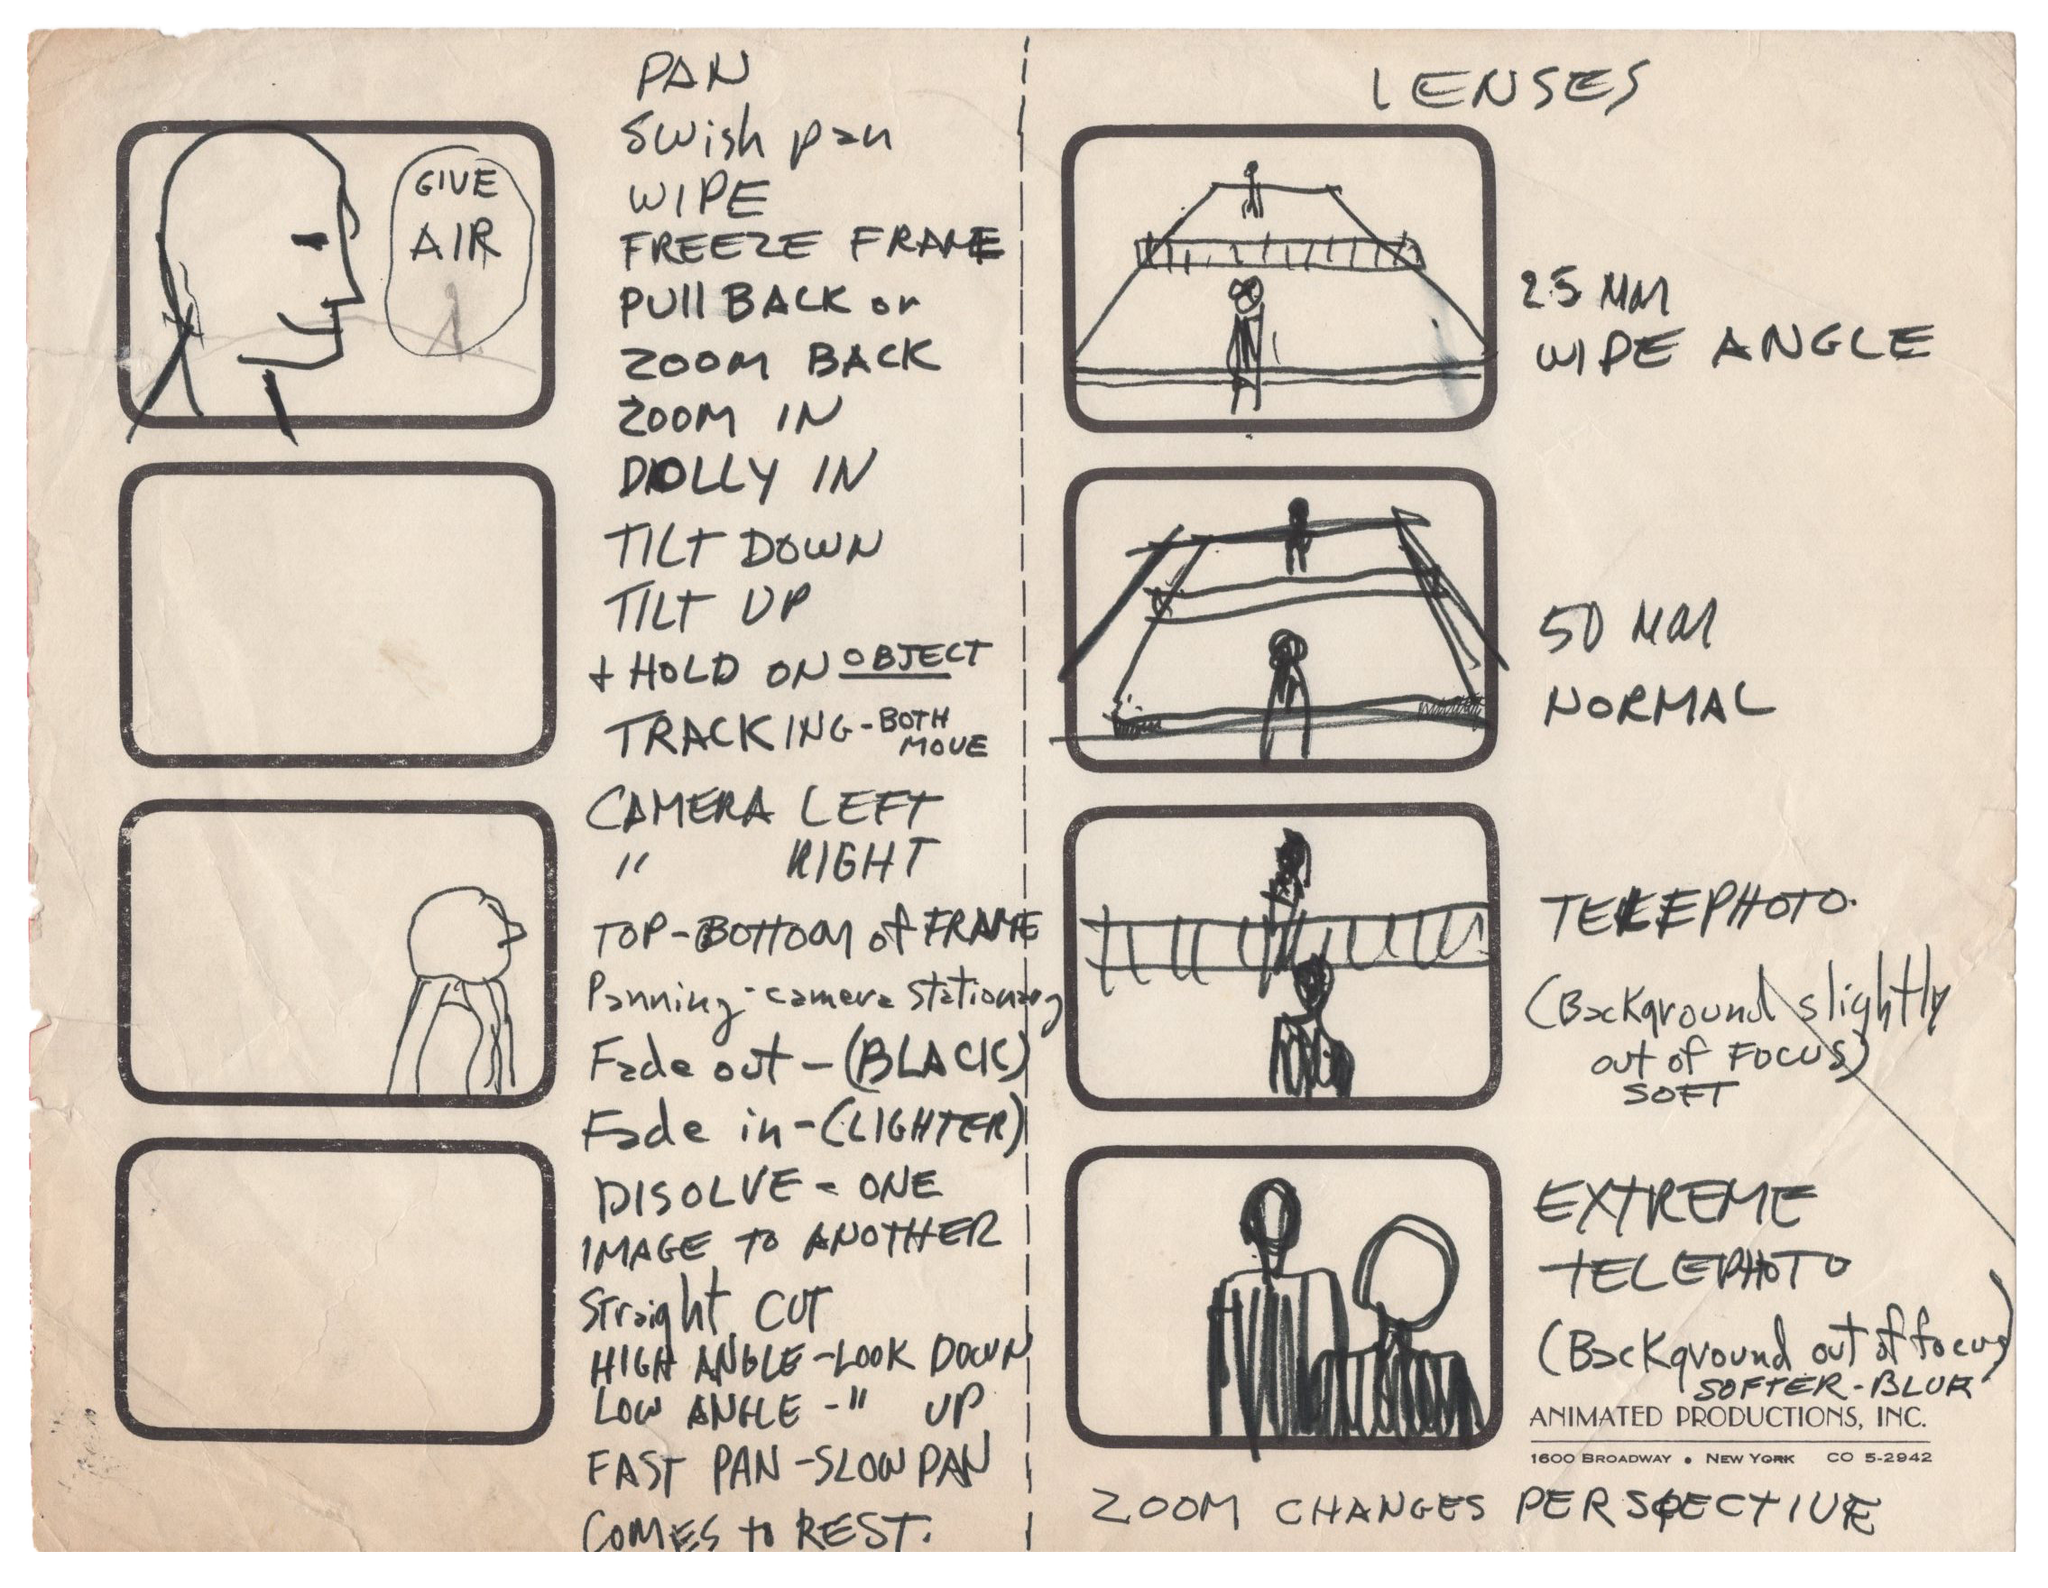 GIVE
AIR
PAN
Swish pan
WIPE
FREEZE FRAME
PUll BACK or
ZOOM BACK
ZOOM IN
DOLLY IN
TILT DOWN
TILT UP
+ HOLD ON OBJECT
TRACKING - BOTH
MOVE
CAMERA LEFT
" RIGHT
TOP - BOTTOM of FRAME
Panning - camera stationary
Fade out - (BLACK)
Fade in - (LIGHTER)
DISOLVE - ONE
IMAGE TO ANOTHER
Straight CUT
HIGH ANGLE - LOOK DOWN
LOW ANGLE - " UP
FAST PAN - SLOW PAN
COMES to REST.
LENSES
25 MM
WIDE ANGLE
50 MM
NORMAL
TELEPHOTO.
(Background slightly
out of FOCUS)
SOFT
EXTREME
TELEPHOTO
(Background out of focus)
SOFTER - BLUR
ANIMATED PRODUCTIONS, INC.
1600 BROADWAY • NEW YORK CO 5-2942
ZOOM CHANGES PERSPECTIVE